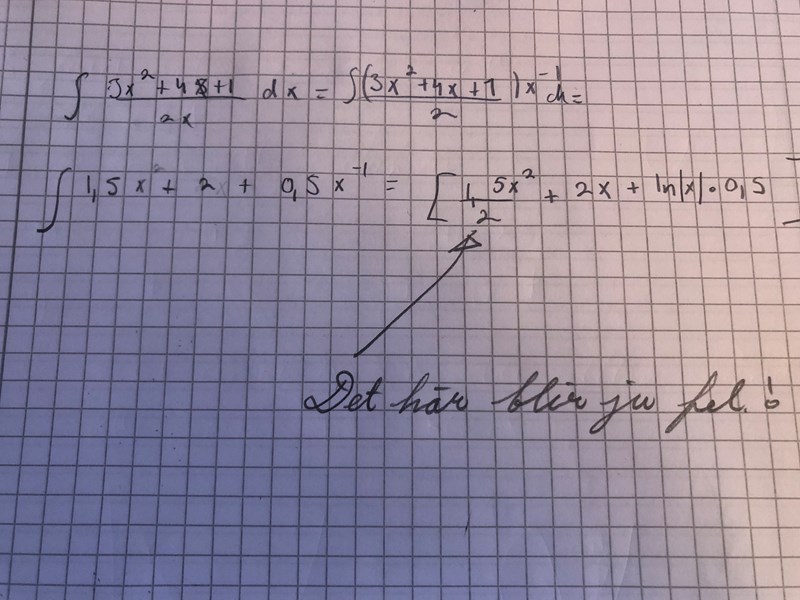 ∫ (3x² + 4x + 1)/(2x) dx = ∫ ((3x² + 4x + 1)/2) x⁻¹ dx =
∫ 1,5x + 2 + 0,5x⁻¹ = [ 1,5x²/2 + 2x + ln|x| · 0,5 ]
Det här blir ju fel!